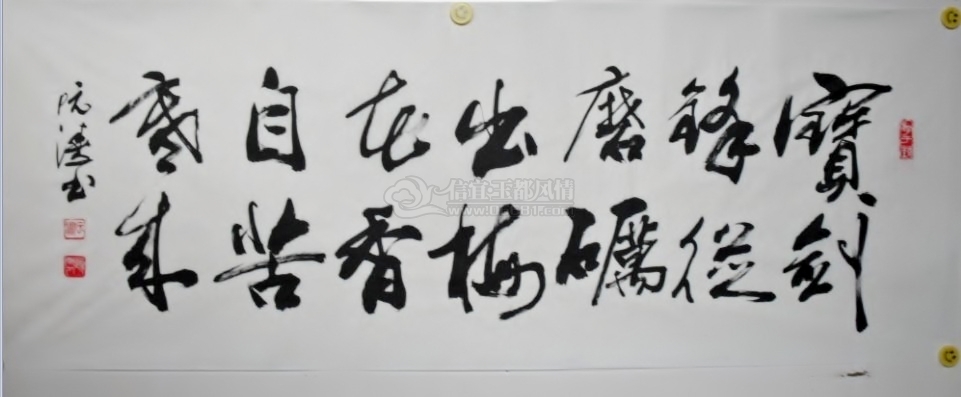 寶劍
鋒從
磨礪
出梅
花香
自苦
寒來
信宜玉都风情